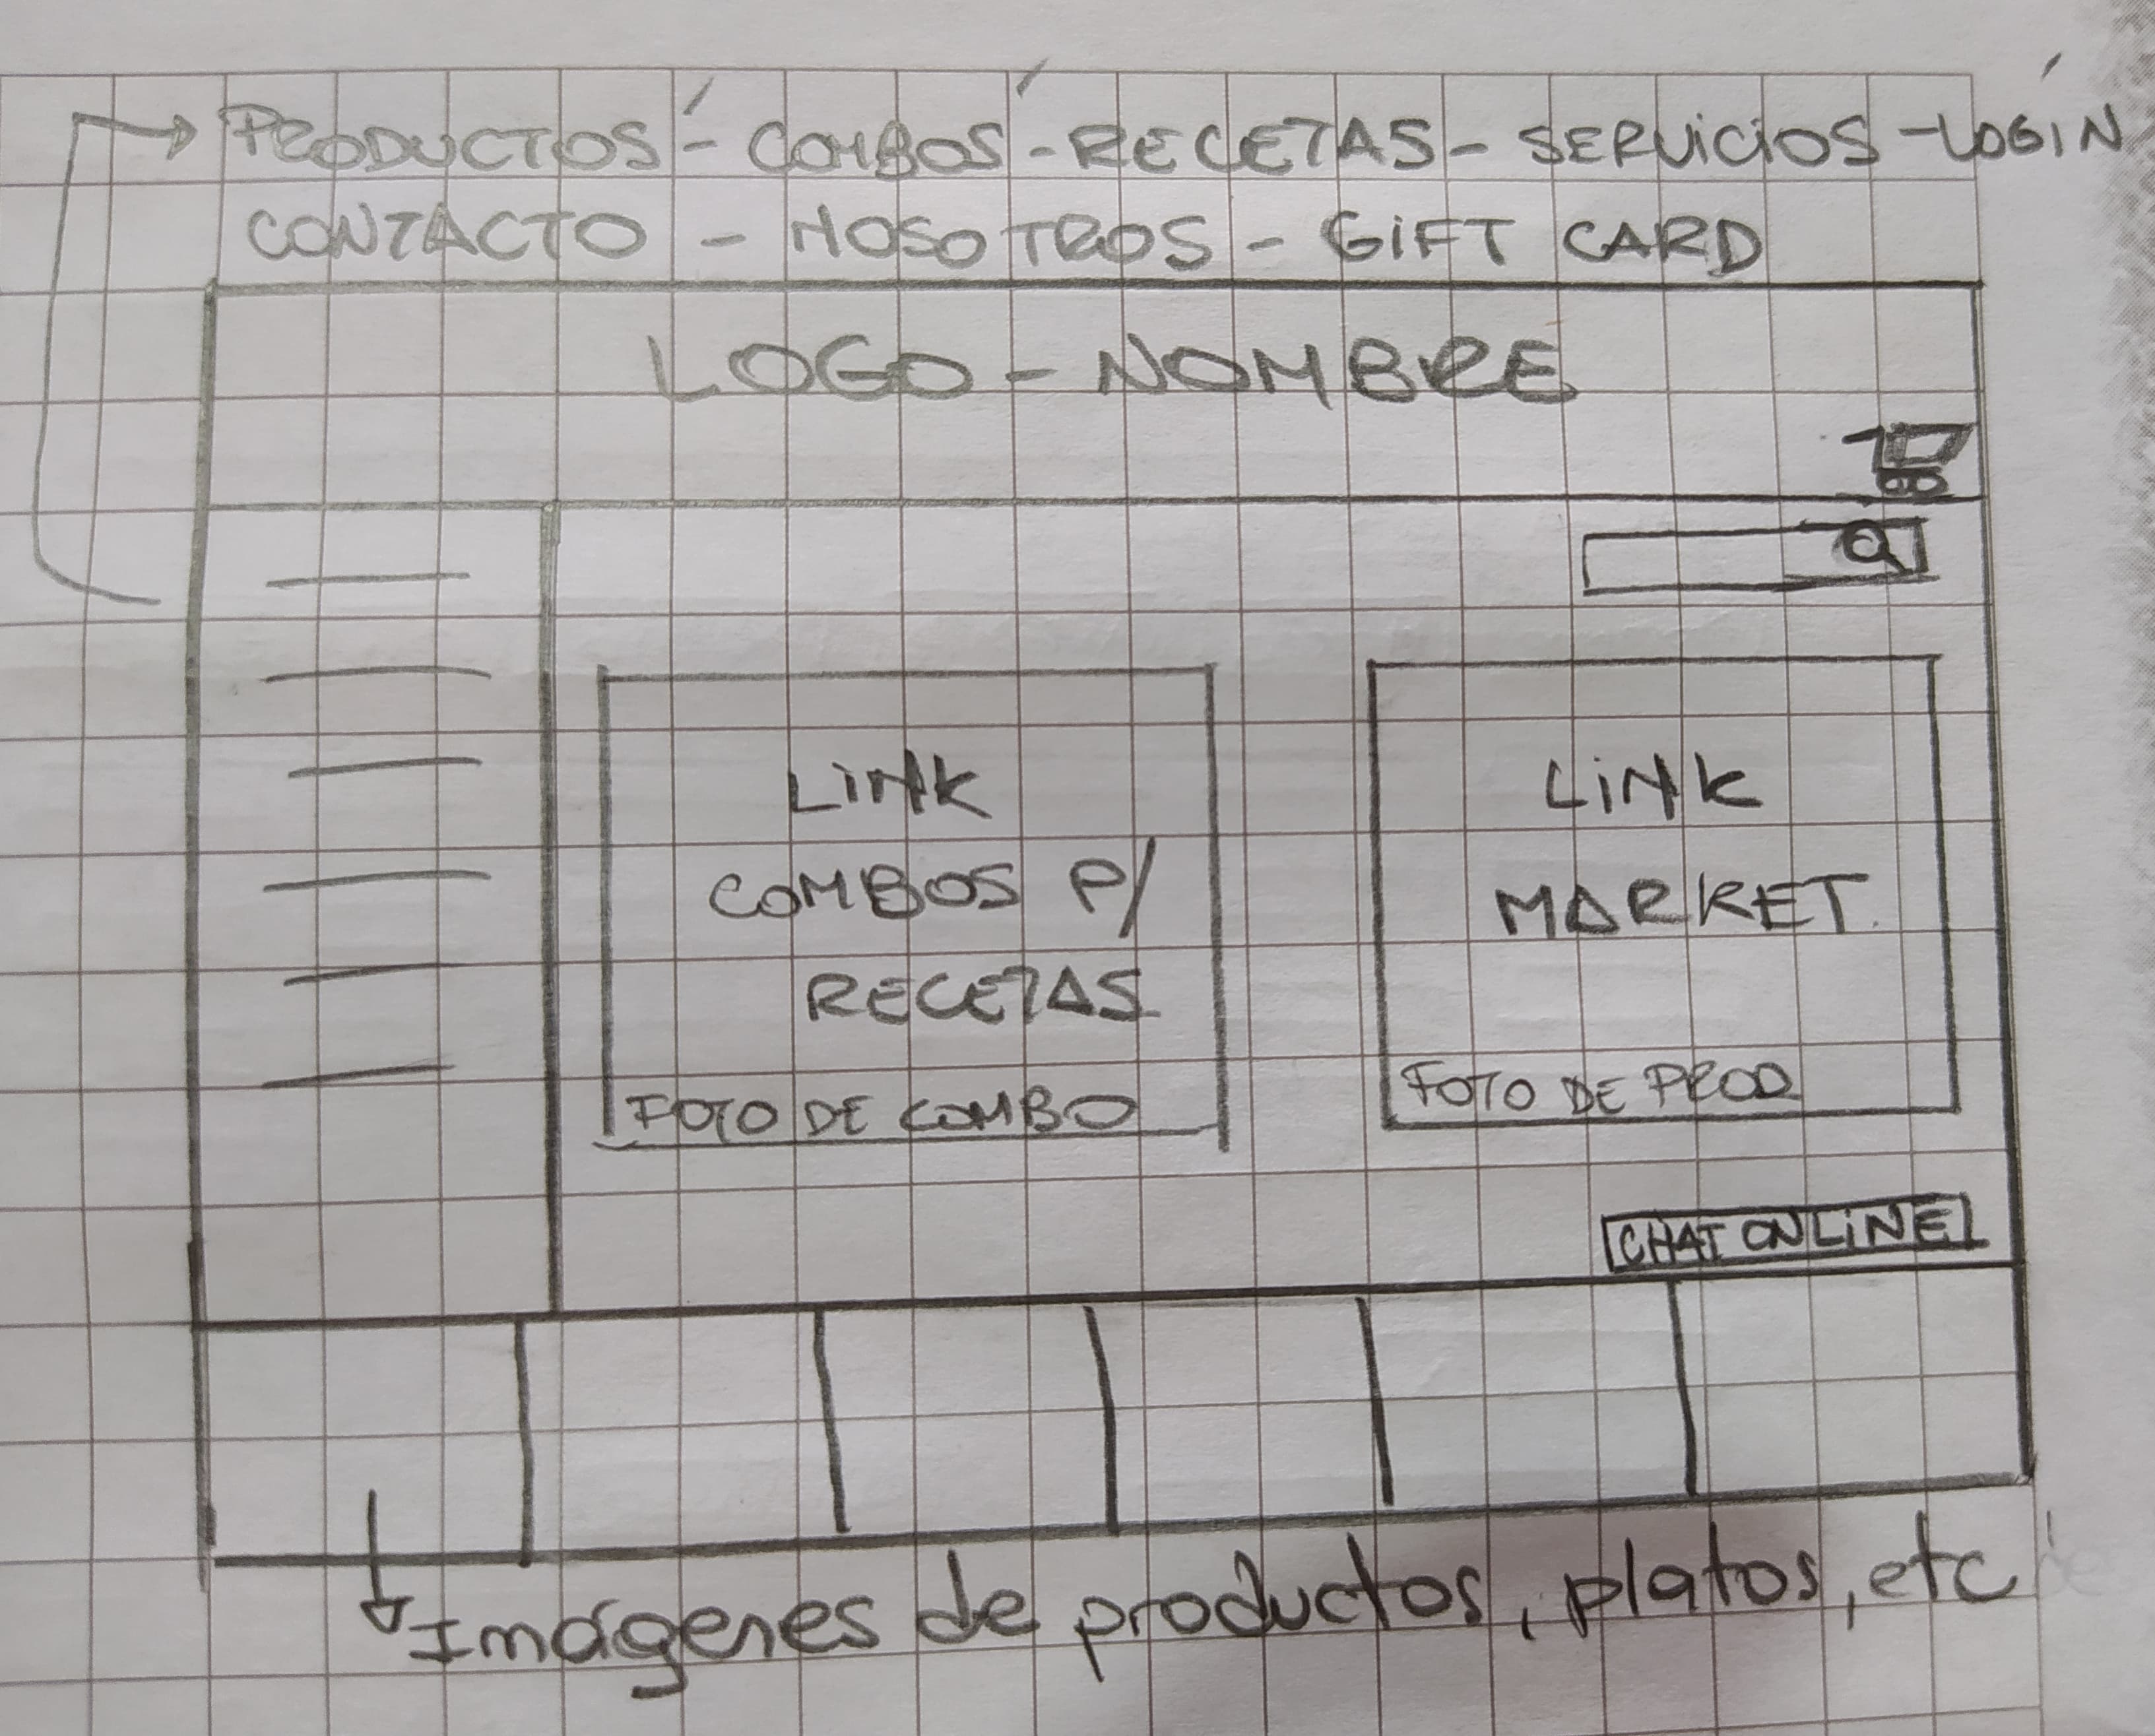 PRODUCTOS - COMBOS - RECETAS - SERVICIOS - LOGIN
CONTACTO - NOSOTROS - GIFT CARD
LOGO - NOMBRE
LINK
COMBOS P/
RECETAS
FOTO DE COMBO
LINK
MARKET
FOTO DE PROD
CHAT ONLINE
Imágenes de productos, platos, etc